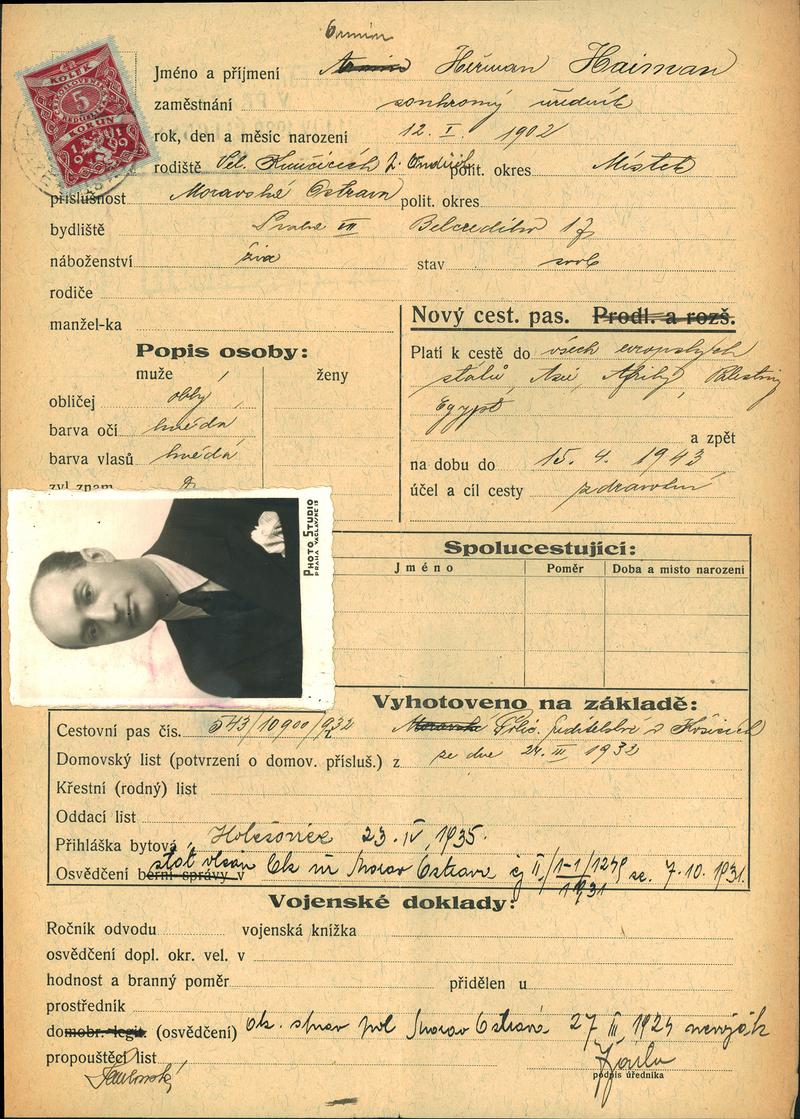 Armin
Jméno a příjmení Armin Heřman Haiman
zaměstnání soukromý úředník
rok, den a měsíc narození 12. I. 1902
rodiště Vel. Kunčicích polit. okres Místek
příslušnost Moravská Ostrava polit. okres
bydliště Praha VII Belcrediho 17
náboženství žid stav svob
rodiče
manžel-ka
Nový cest. pas. Prodl. a rozš.
Platí k cestě do všech evropských
států, Asie, Afriky, Palestiny
Egypt
a zpět
na dobu do 15. 4. 1943
účel a cíl cesty zdravotní
Popis osoby:
muže ženy
obličej oblý
barva očí hnědá
barva vlasů hnědá
zvl. znam.
KOLEK
5
KORUN
1919
PHOTO STUDIO
PRAHA VÁCLAVNÉ
Spolucestující:
Jméno Poměr Doba a místo narození
Vyhotoveno na základě:
Cestovní pas čís. 543/10900/932 Polic. ředitelství v Košicích
Domovský list (potvrzení o domov. přísluš.) z ze dne 24. III 1932
Křestní (rodný) list
Oddací list
Přihláška bytová Holešovice 23. IV. 1935.
Osvědčení berní správy v stát. občan Ok úř Morav Ostrava čj II/1-1/ 1931 ze. 7. 10. 1931.
Vojenské doklady:
Ročník odvodu vojenská knížka
osvědčení dopl. okr. vel. v
hodnost a branný poměr přidělen u
prostředník
domobr. legit. (osvědčení) Ok. správ pol Morav Ostrava 27 III 1924 nevoják
propouštěcí list
podpis úředníka